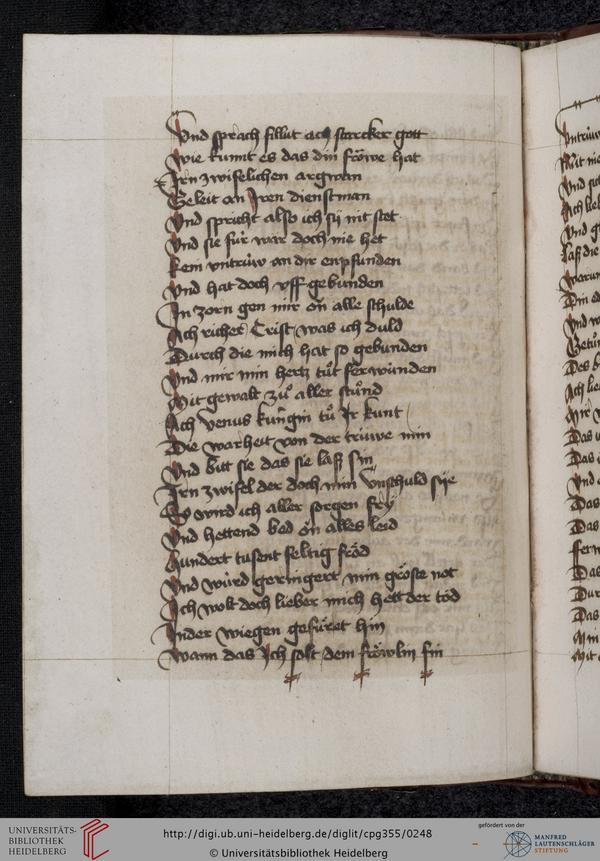 Vnd sprach fillut ach starcker gott
Wie kumt es das din fröwe hat
Irn zwiselichen argwan
Geleit an Iren dienstman
Vnd spricht also ich sÿ nit stet
Vnd sie für war doch nie het
Kein vntrüw an dir enpfunden
Vnd hat doch vff gebunden
In zorn gen mir on alle schulde
Ach richer Crist was ich duld
Durch die mich hat so gebunden
Vnd mir min hertz tüt ferwunden
Mit gewalt zů aller stund
Ach venus kungin tů Ir kunt
Die warheit von der trüwe min
Vnd bitt sie das sie laß sin
Irn zwifel der doch min vnschuld sÿe
So wird ich aller sorgen frÿ
Vnd hettend bed on alles leid
Hundert tusent feltig fröd
Vnd würd geringert min gröste not
Ich wolt doch lieber mich hett der tod
In der wiegen gefüret hin
Wann das Ich solt dem fröwlin sin
Vntrüw
Mit
Vnd
Ach
Vnd
Laß die
Warum
Vnd
Ach
Das
Das
Vnd
Das
Das
Das
Dur
Das
Min
Mit
UNIVERSITÄTS-
BIBLIOTHEK
HEIDELBERG
http://digi.ub.uni-heidelberg.de/diglit/cpg355/0248
© Universitätsbibliothek Heidelberg
gefördert von der
MANFRED
LAUTENSCHLÄGER
STIFTUNG